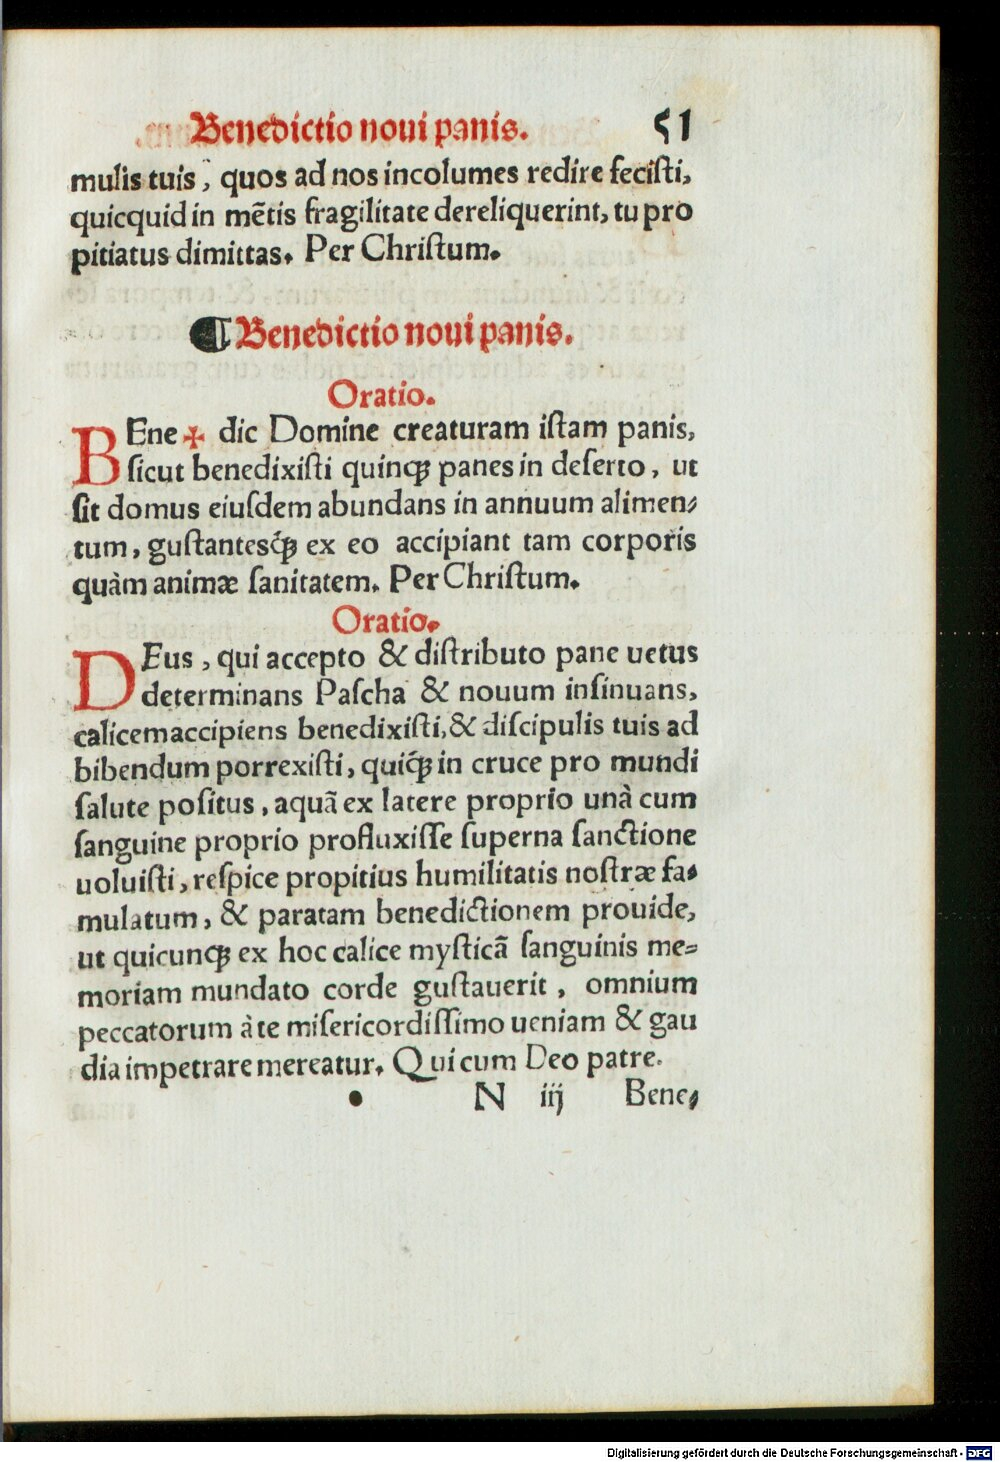 Benedictio noui panis. 51
mulis tuis, quos ad nos incolumes redire fecisti,
quicquid in mētis fragilitate dereliquerint, tu pro
pitiatus dimittas. Per Christum.
¶ Benedictio noui panis.
Oratio.
BEne✠ dic Domine creaturam istam panis,
sicut benedixisti quinqꝫ panes in deserto, ut
sit domus eiusdem abundans in annuum alimen-
tum, gustantesq́ꝫ ex eo accipiant tam corporis
quàm animæ sanitatem. Per Christum.
Oratio.
DEus, qui accepto & distributo pane uetus
determinans Pascha & nouum insinuans,
calicem accipiens benedixisti, & discipulis tuis ad
bibendum porrexisti, quiq́ꝫ in cruce pro mundi
salute positus, aquā ex latere proprio unà cum
sanguine proprio profluxisse superna sanctione
uoluisti, respice propitius humilitatis nostræ fa-
mulatum, & paratam benedictionem prouide,
ut quicunqꝫ ex hoc calice mysticā sanguinis me-
moriam mundato corde gustauerit, omnium
peccatorum à te misericordissimo ueniam & gau
dia impetrare mereatur. Qui cum Deo patre.
N iij Bene-
Digitalisierung gefördert durch die Deutsche Forschungsgemeinschaft - DFG